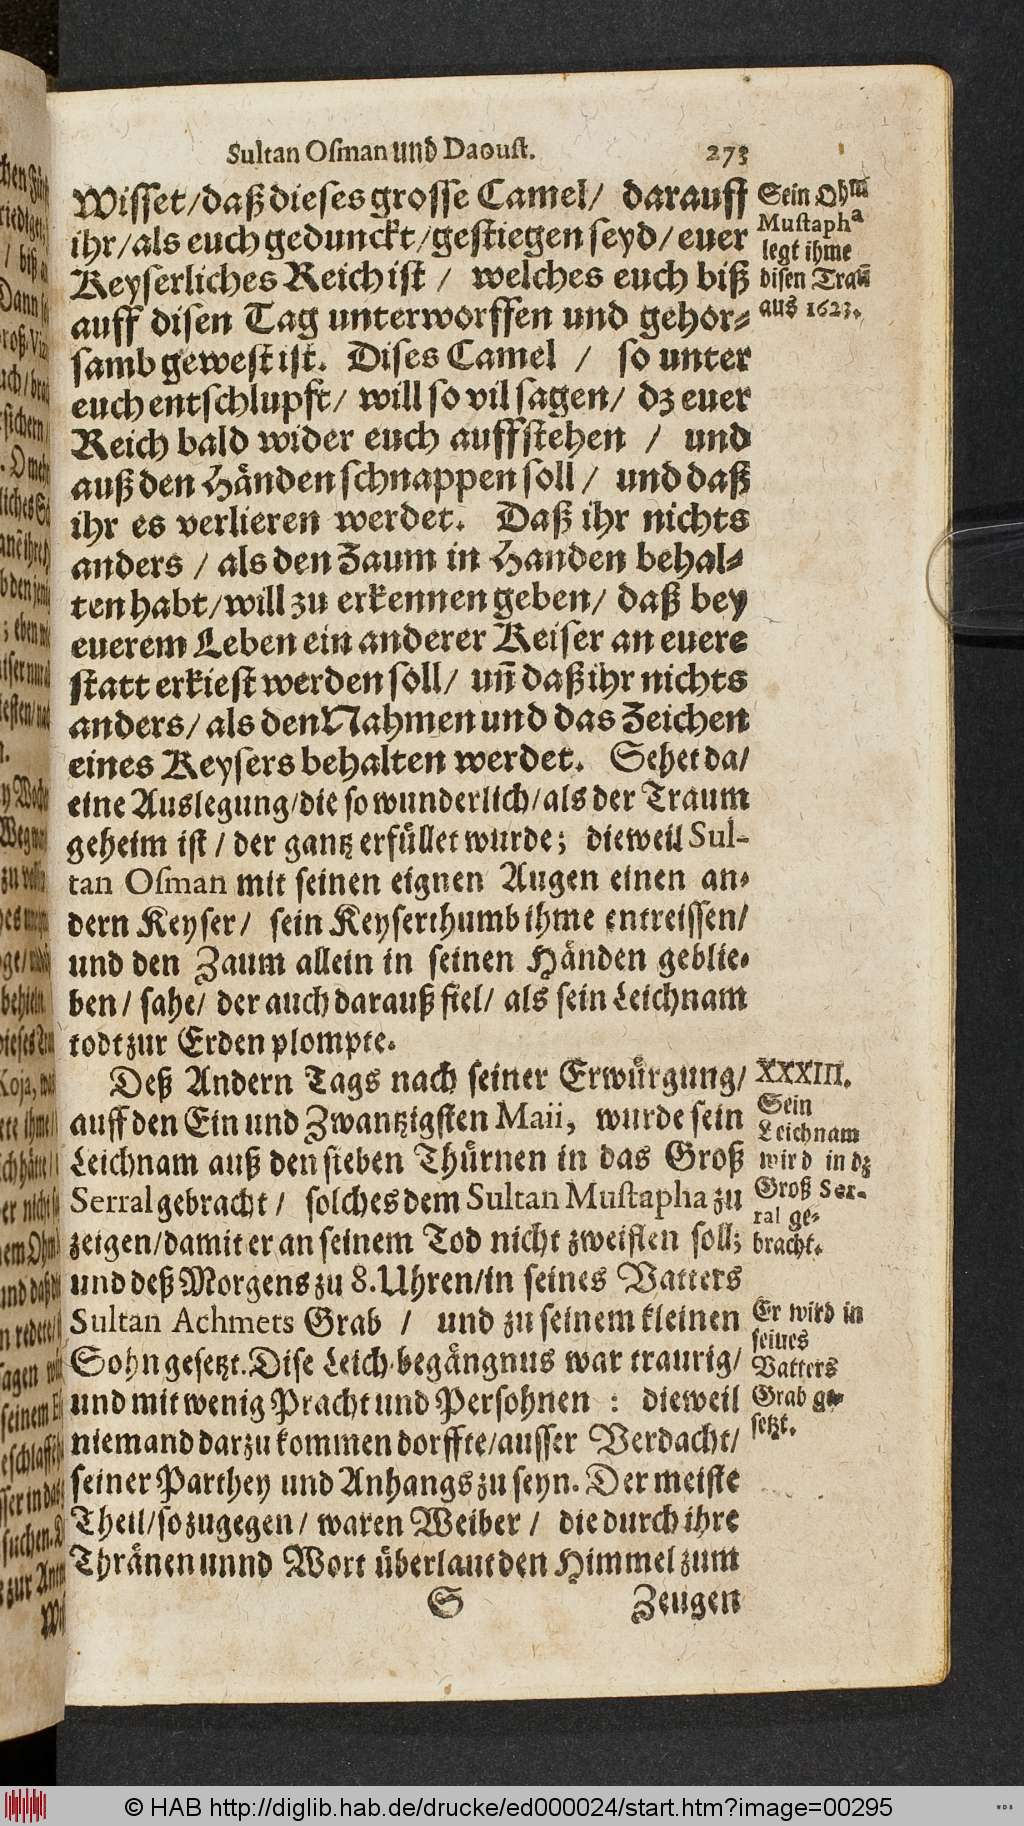 Sultan Osman und Daoust. 273
Wisset/daß dieses grosse Camel/ darauff
ihr/als euch gedunckt/gestiegen seyd/euer
Keyserliches Reich ist / welches euch biß
auff disen Tag unterworffen und gehor-
samb gewest ist. Dises Camel / so unter
euch entschlupft/ will so vil sagen/ dz euer
Reich bald wider euch auffstehen / und
auß den Händen schnappen soll / und daß
ihr es verlieren werdet. Daß ihr nichts
anders / als den Zaum in Handen behal-
ten habt/will zu erkennen geben/ daß bey
euerem Leben ein anderer Keiser an euere
statt erkiest werden soll/ uñ daß ihr nichts
anders/als den Nahmen und das Zeichen
eines Keysers behalten werdet. Sehet da/
eine Auslegung/die so wunderlich/als der Traum
geheim ist / der gantz erfüllet wurde; dieweil Sul-
tan Osman mit seinen eignen Augen einen an-
dern Keyser/ sein Keyserthumb ihme entreissen/
und den Zaum allein in seinen Händen geblie-
ben/ sahe/ der auch darauß fiel/ als sein Leichnam
todt zur Erden plompte.
Deß Andern Tags nach seiner Erwürgung/
auff den Ein und Zwantzigsten Maii, wurde sein
Leichnam auß den sieben Thürnen in das Groß
Serral gebracht / solches dem Sultan Mustapha zu
zeigen/damit er an seinem Tod nicht zweiflen soll;
und deß Morgens zu 8. Uhren/in seines Vatters
Sultan Achmets Grab / und zu seinem kleinen
Sohn gesetzt. Dise Leich-begängnus war traurig/
und mit wenig Pracht und Persohnen : dieweil
niemand darzu kommen dorffte/ausser Verdacht/
seiner Parthey und Anhangs zu seyn. Der meiste
Theil/so zugegen/ waren Weiber / die durch ihre
Thränen unnd Wort überlaut den Himmel zum
S Zeugen
Sein Ohm
Mustapha
legt ihme
disen Traũ
aus 1623.
XXXIII.
Sein
Leichnam
wird in dz
Groß Ser-
ral ge-
bracht.
Er wird in
seines
Vatters
Grab ge-
setzt.
© HAB http://diglib.hab.de/drucke/ed000024/start.htm?image=00295